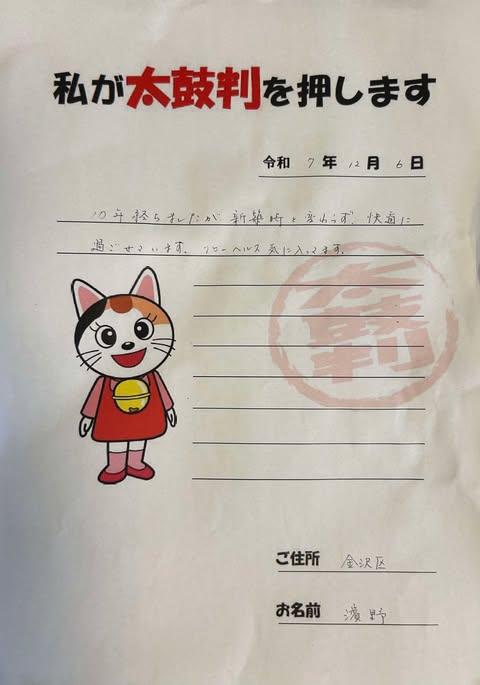 私が太鼓判を押します
令和 7年 12月 6日
10年経ちましたが新築時と変わらず、快適に
過ごせています。クリーンヘルス気に入ってます。
太鼓判
ご住所 金沢区
お名前 濱野